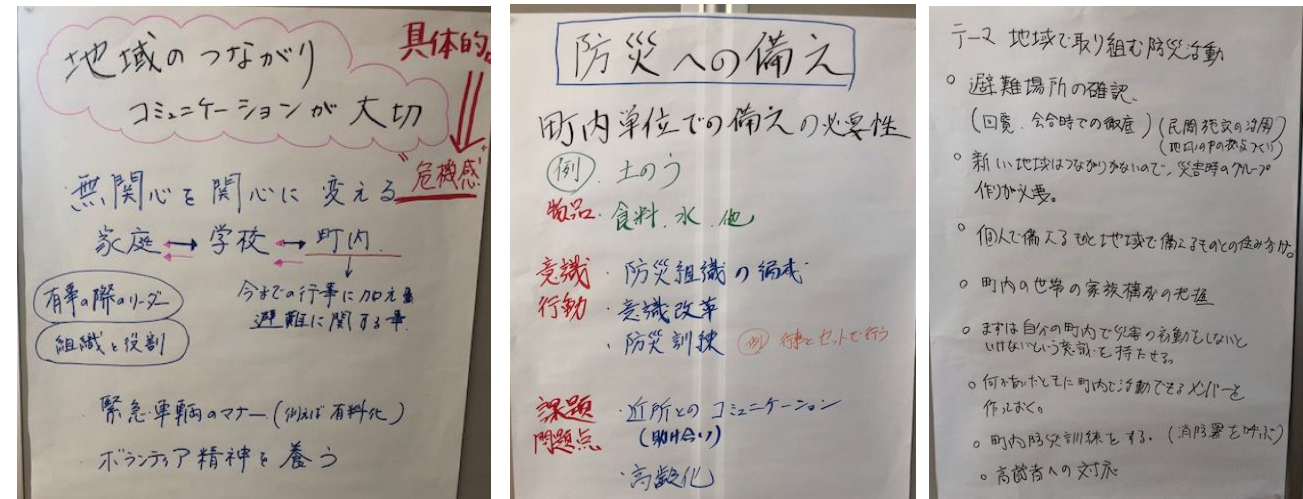 地域のつながり
コミュニケーションが大切
具体的。
"危機感"
・無関心を関心に変える
家庭 ↔ 学校 ↔ 町内
有事の際のリーダー
組織と役割
今までの行事に加え
避難に関する事
・緊急車輌のマナー(例えば有料化)
ボランティア精神を養う
防災への備え
町内単位での備えの必要性
例 . 土のう
物品・食料.水.他
意識 ・防災組織の編成
行動 ・意識改革
・防災訓練 例 行事とセットで行う
課題 ・近所とのコミュニケーション
問題点 (助け合い)
・高齢化
テーマ 地域で取り組む防災活動
○ 避難場所の確認
(回覧.会合時での徹底)(民間施設の活用)
○ 新しい地域はつながりがないので、災害時のグループ
作りが必要。
○ 個人で備えるものと地域で備えるものとの住み分け。
○ 町内の世帯の家族構成の把握
○ まずは自分の町内で災害の初動をしないと
いけないという意識を持たせる。
○ 何かあったときに町内で活動できるメンバーを
作っておく。
○ 町内防災訓練をする。(消防署を呼ぶ)
○ 高齢者への対応